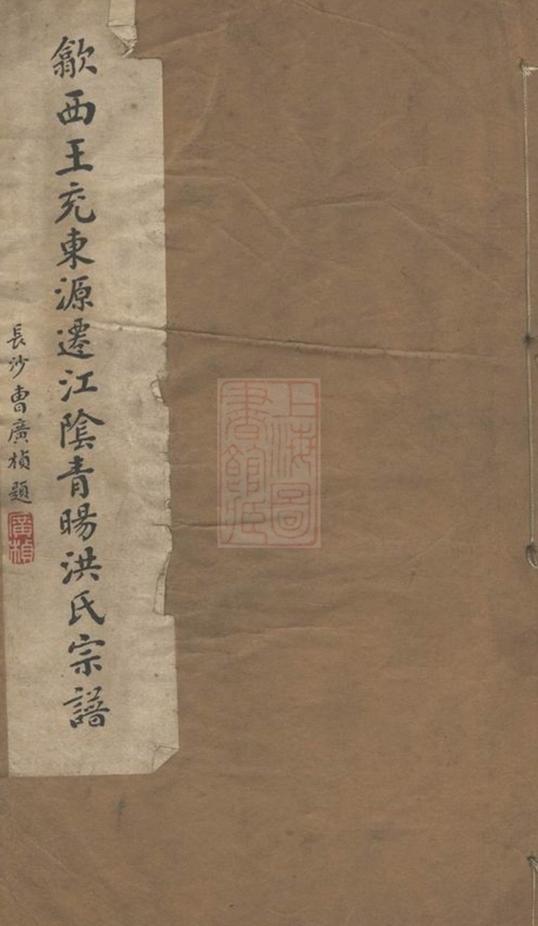 歙西王充東源遷江陰青暘洪氏宗譜
長沙曹廣楨題
廣楨
上海圖書館藏